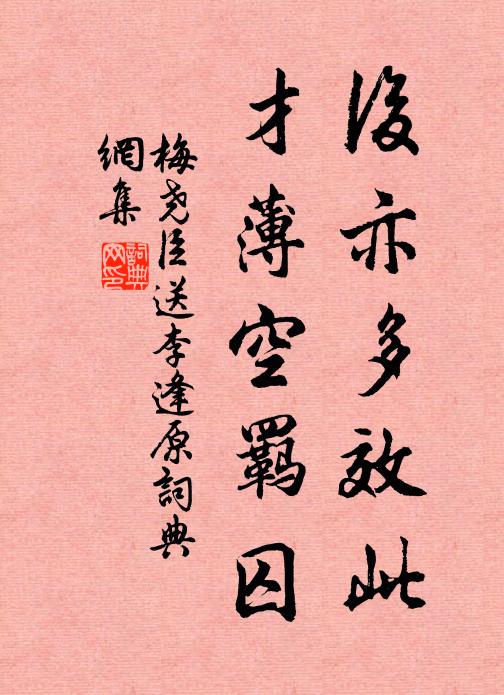 後亦多效此
才薄空羈囚
梅堯臣送李逢原詞典
網集
詞典網印